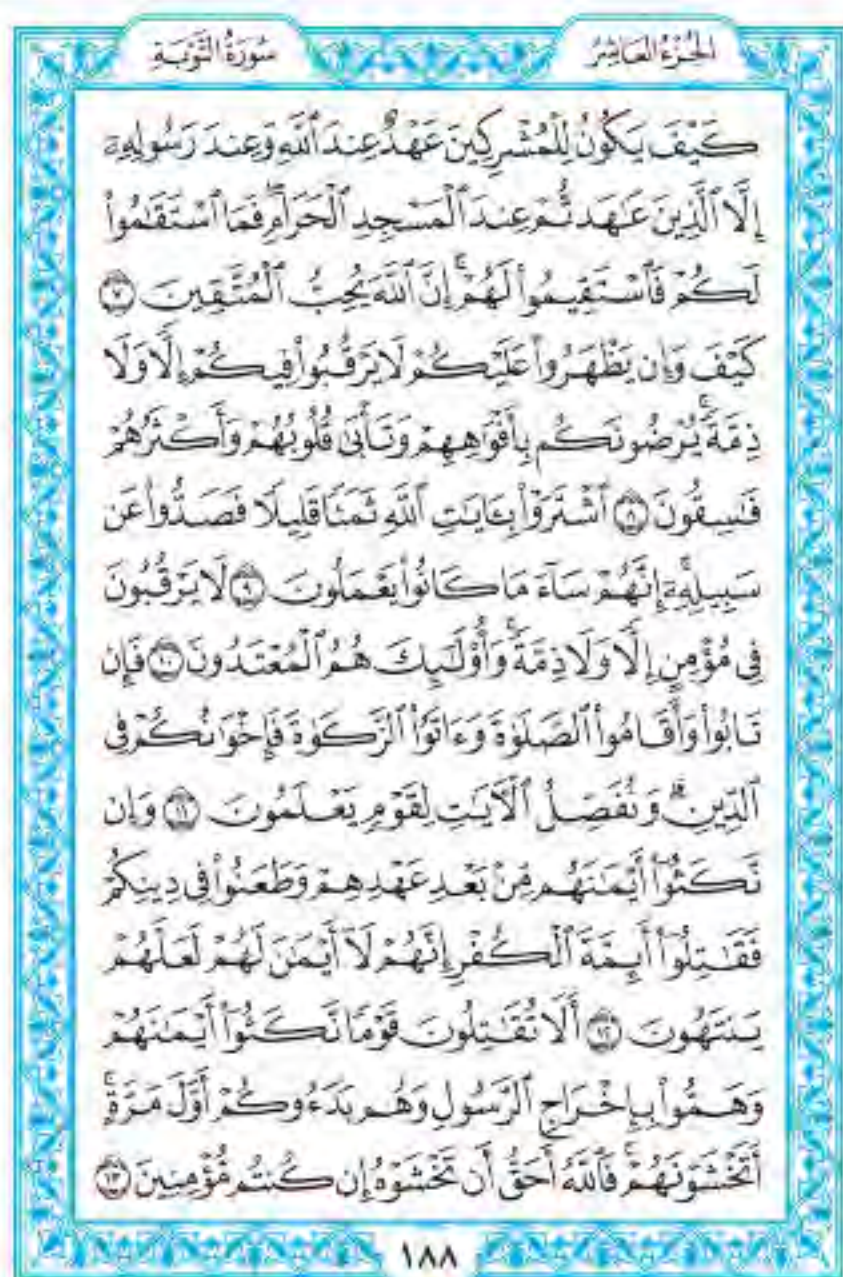 الجزء العاشر
سورة التوبة
كَيْفَ يَكُونُ لِلْمُشْرِكِينَ عَهْدٌ عِندَ ٱللَّهِ وَعِندَ رَسُولِهِۦٓ
إِلَّا ٱلَّذِينَ عَٰهَدتُّمْ عِندَ ٱلْمَسْجِدِ ٱلْحَرَامِۖ فَمَا ٱسْتَقَٰمُوا۟
لَكُمْ فَٱسْتَقِيمُوا۟ لَهُمْۚ إِنَّ ٱللَّهَ يُحِبُّ ٱلْمُتَّقِينَ ٧
كَيْفَ وَإِن يَظْهَرُوا۟ عَلَيْكُمْ لَا يَرْقُبُوا۟ فِيكُمْ إِلًّا وَلَا
ذِمَّةًۚ يُرْضُونَكُم بِأَفْوَٰهِهِمْ وَتَأْبَىٰ قُلُوبُهُمْ وَأَكْثَرُهُمْ
فَٰسِقُونَ ٨ ٱشْتَرَوْا۟ بِـَٔايَٰتِ ٱللَّهِ ثَمَنًا قَلِيلًا فَصَدُّوا۟ عَن
سَبِيلِهِۦٓۚ إِنَّهُمْ سَآءَ مَا كَانُوا۟ يَعْمَلُونَ ٩ لَا يَرْقُبُونَ
فِى مُؤْمِنٍ إِلًّا وَلَا ذِمَّةًۚ وَأُو۟لَٰٓئِكَ هُمُ ٱلْمُعْتَدُونَ ١٠ فَإِن
تَابُوا۟ وَأَقَامُوا۟ ٱلصَّلَوٰةَ وَءَاتَوُا۟ ٱلزَّكَوٰةَ فَإِخْوَٰنُكُمْ فِى
ٱلدِّينِۗ وَنُفَصِّلُ ٱلْـَٔايَٰتِ لِقَوْمٍ يَعْلَمُونَ ١١ وَإِن
نَّكَثُوٓا۟ أَيْمَٰنَهُم مِّنۢ بَعْدِ عَهْدِهِمْ وَطَعَنُوا۟ فِى دِينِكُمْ
فَقَٰتِلُوٓا۟ أَئِمَّةَ ٱلْكُفْرِۙ إِنَّهُمْ لَآ أَيْمَٰنَ لَهُمْ لَعَلَّهُمْ
يَنتَهُونَ ١٢ أَلَا تُقَٰتِلُونَ قَوْمًا نَّكَثُوٓا۟ أَيْمَٰنَهُمْ
وَهَمُّوا۟ بِإِخْرَاجِ ٱلرَّسُولِ وَهُم بَدَءُوكُمْ أَوَّلَ مَرَّةٍۚ
أَتَخْشَوْنَهُمْۚ فَٱللَّهُ أَحَقُّ أَن تَخْشَوْهُ إِن كُنتُم مُّؤْمِنِينَ ١٣
١٨٨